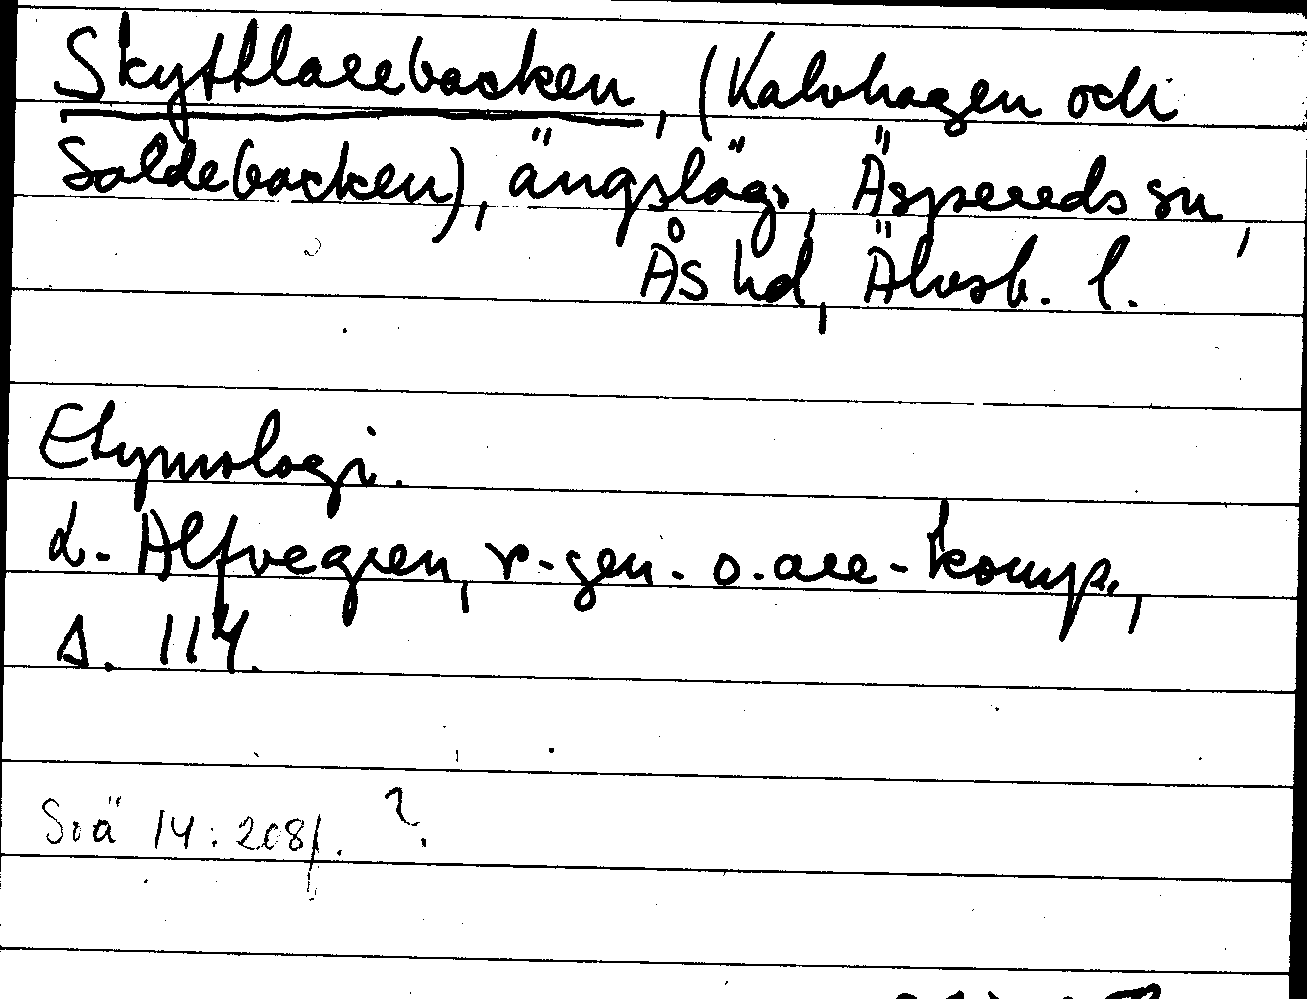 Skyttlarebacken, (Kalvhagen och
Soldebacken), ängslägr, Äspereds sn,
Ås hd, Älvsb. l.
Etymologi.
L. Alfvegren, r-gen. o. are-komp.,
s. 114.
Soä 14:208f. ?.